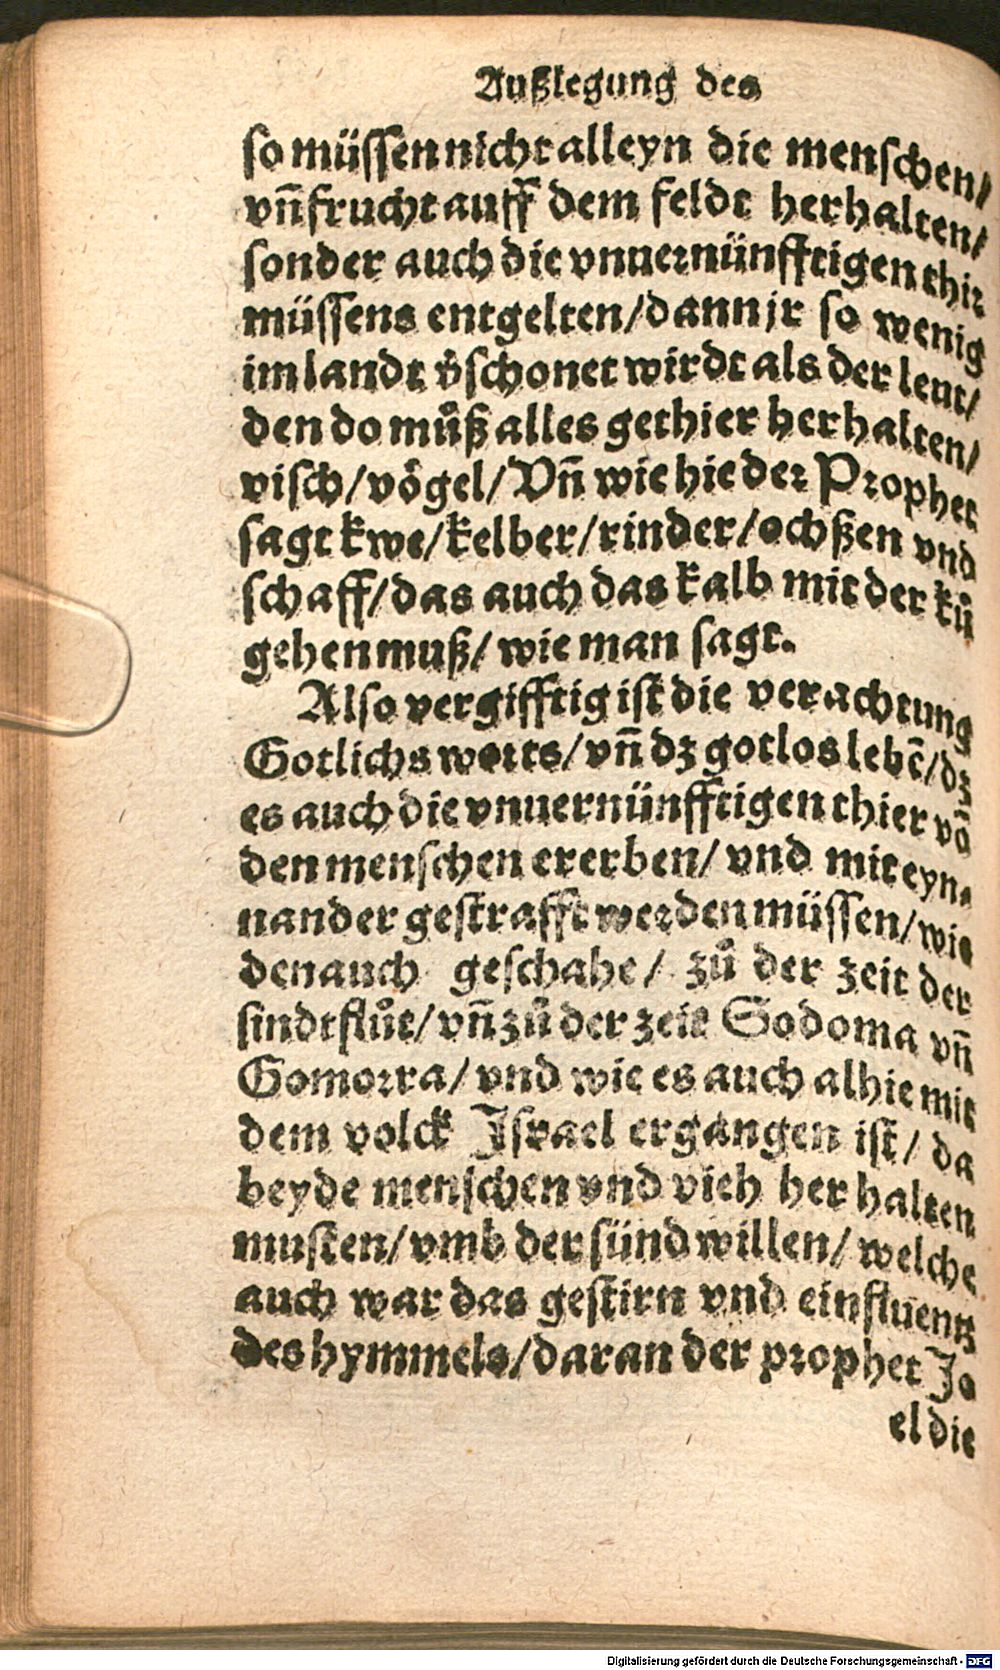 Außlegung des
so müssen nicht alleyn die menschen/
vñ frucht auff dem feldt herhalten/
sonder auch die vnuernünfftigen thir
müssens entgelten/dann jr so wenig
im landt v̊schonet wirdt als der leut/
den do můß alles gethier herhalten/
visch/vögel/Vñ wie hie der Prophet
sagt kwe/kelber/rinder/ochßen vnd
schaff/das auch das kalb mit der ků
gehen muß/wie man sagt.
Also vergifftig ist die verachtung
Gotlichs worts/vñ dz gotlos lebē/dz
es auch die vnuernünfftigen thier vō
den menschen ererben/vnd mit eyn⸗
nander gestrafft werden müssen/wie
den auch geschahe/ zů der zeit der
sindtflůt/vñ zů der zeit Sodoma vñ
Gomorra/vnd wie es auch alhie mit
dem volck Israel ergangen ist/ da
beyde menschen vnd vieh her halten
musten/vmb der sünd willen/welche
auch war das gestirn vnd einfluentz
des hymmels/daran der prophet Jo
el die
Digitalisierung gefördert durch die Deutsche Forschungsgemeinschaft - DFG